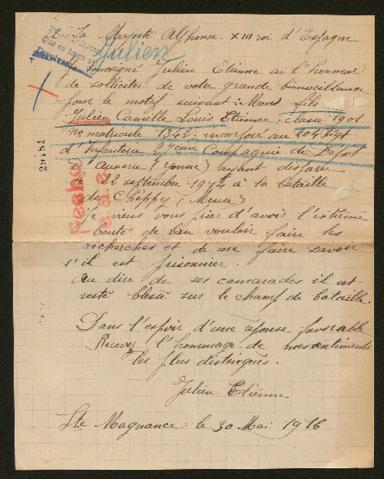 A Sa Majesté Alphonse XIII roi d'Espagne
Julien
Soussigné Julien Etienne a l'honneur
de solliciter de votre grande bienveillance
pour le motif suivant: Mons fils
Julien Camille Louis Etienne: classe 1901
Nº matricule 1342: incorporé au 204 Regt
d'Infanterie 27ième Compagnie de Dépôt
d'Auxerre (Yonne) ayant disparu
le septembre 1914 à la bataille
de Cheppy (Meuse)
je viens vous prier d'avoir l'extrême
bonté de bien vouloir faire les
recherches et de me faire savoir
s'il est prisonnier.
Au dire de ses camarades il est
resté blessé sur le champ de bataille.
Dans l'espoir d'une réponse favorable
Recevez l'hommage de mes sentiments
les plus distingués.
Julien Etienne
Ste Magnance le 30 Mai 1916
Fecho